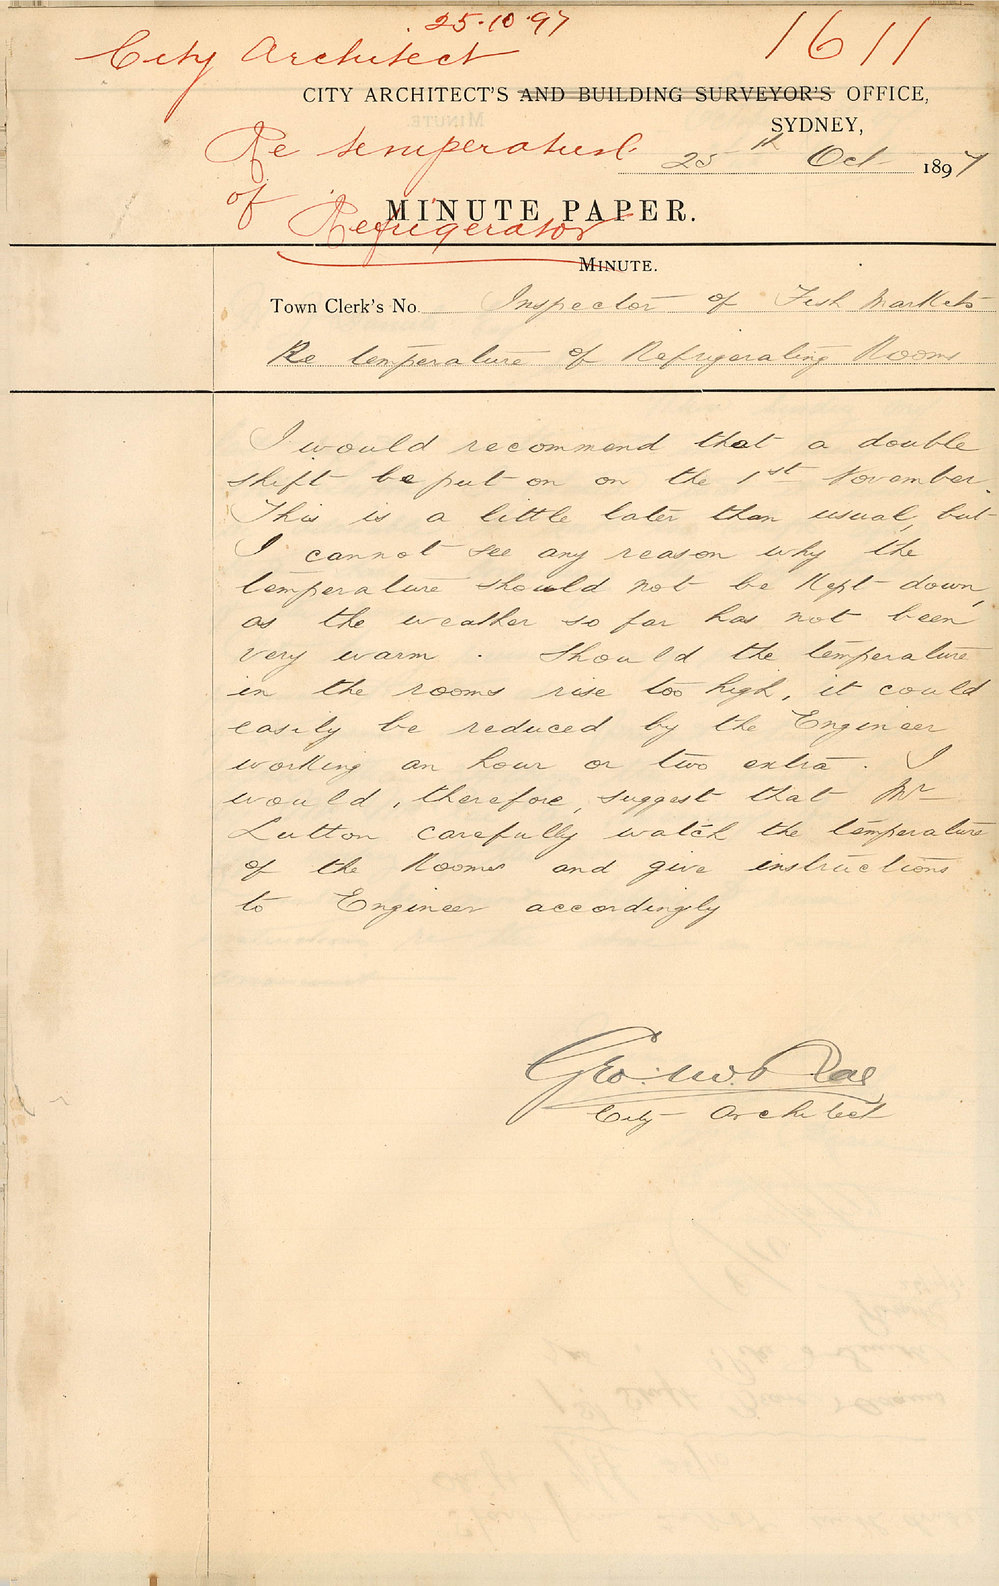 25.10.97
City Architect
1611
CITY ARCHITECT'S AND BUILDING SURVEYOR'S OFFICE,
SYDNEY,
Re temperature
25th Oct 1897
of
MINUTE PAPER.
Refrigerator
MINUTE.
Town Clerk's No. Inspector of Fish Markets
Re temperature of Refrigerating Rooms
I would recommend that a double
shift be put on on the 1st November.
This is a little later than usual, but
I cannot see any reason why the
temperature should not be kept down,
as the weather so far has not been
very warm. Should the temperature
in the rooms rise too high, it could
easily be reduced by the Engineer
working an hour or two extra. I
would, therefore, suggest that Mr
Lutton carefully watch the temperature
of the Rooms and give instructions
to Engineer accordingly
Geo. McRae
City Architect